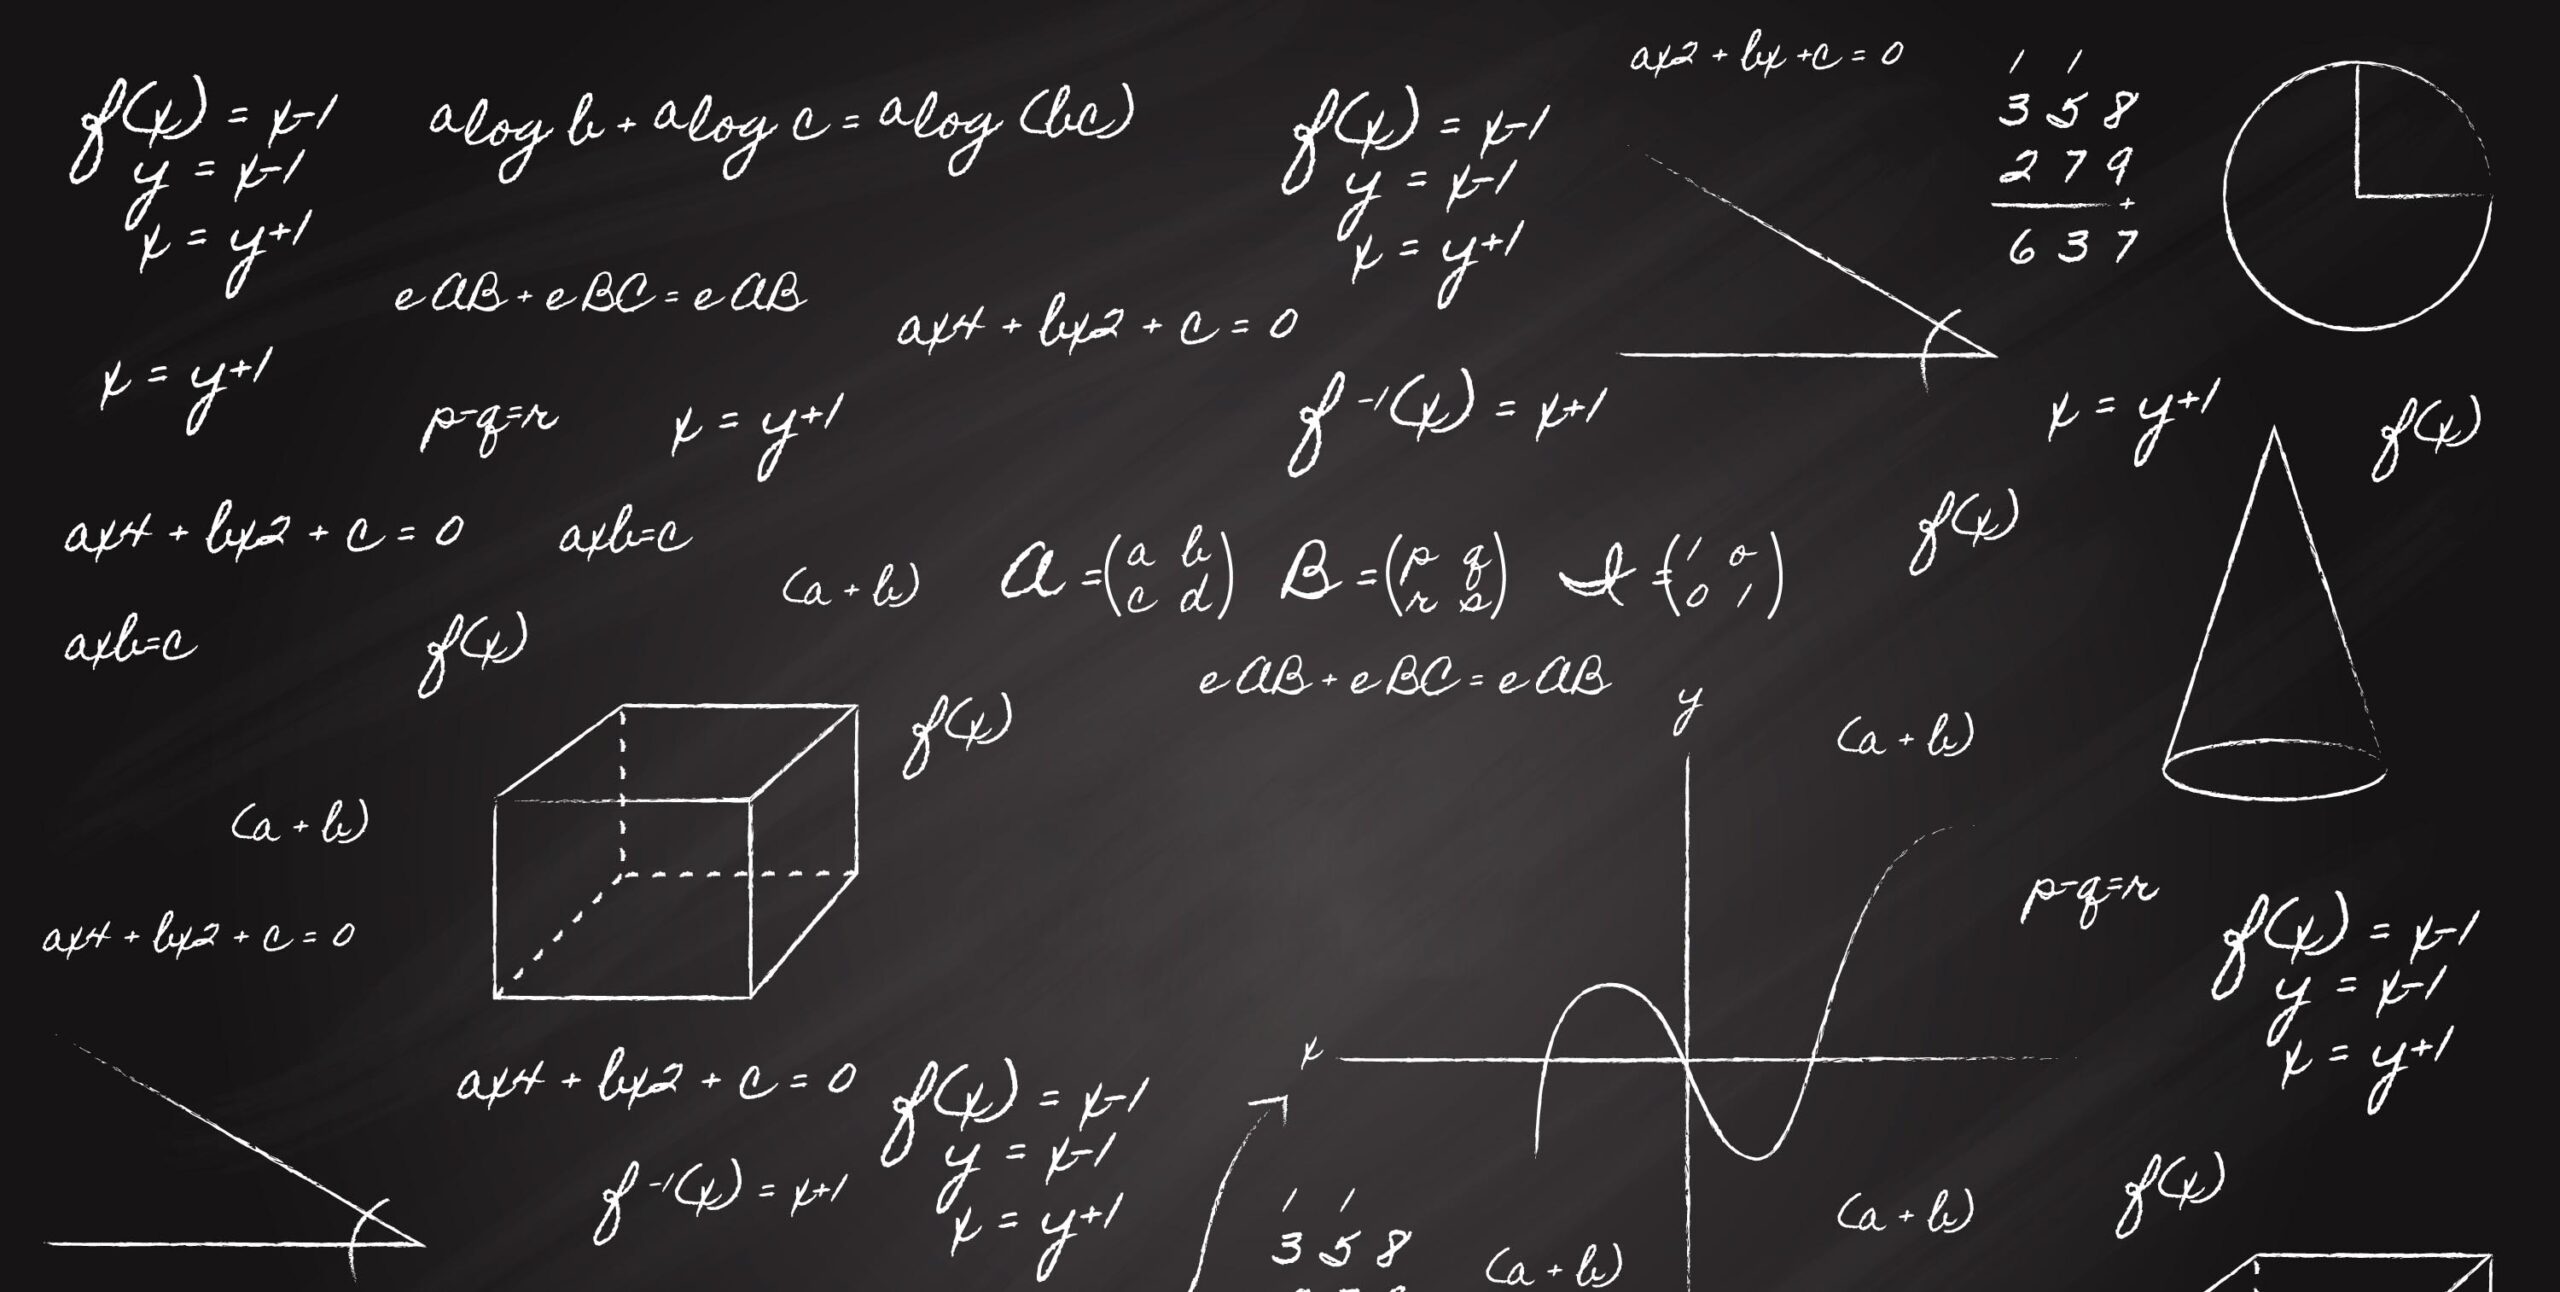 f(x) = x-1
y = x-1
x = y+1
alog b + alog c = alog (bc)
f(x) = x-1
y = x-1
x = y+1
ax2 + bx + c = 0
1 1
3 5 8
2 7 9
+
6 3 7
eAB + eBC = eAB
ax4 + bx2 + c = 0
x = y+1
p-q=r
x = y+1
f -1(x) = x+1
x = y+1
f(x)
ax4 + bx2 + c = 0
axb=c
(a + b)
A = (a b
c d)
B = (p q
r s)
I = (1 0
0 1)
f(x)
axb=c
f(x)
eAB + eBC = eAB
f(x)
y
(a + b)
(a + b)
ax4 + bx2 + c = 0
p-q=r
f(x) = x-1
y = x-1
x = y+1
x
ax4 + bx2 + c = 0
f(x) = x-1
y = x-1
x = y+1
f -1(x) = x+1
1 1
3 5 8
(a + b)
(a + b)
f(x)